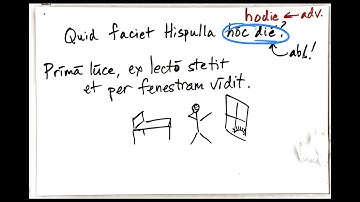 hodie ← adv.
Quid faciet Hispulla hōc diē?
abl!
Prīmā lūce, ex lectō stetit
et per fenestram vīdit.